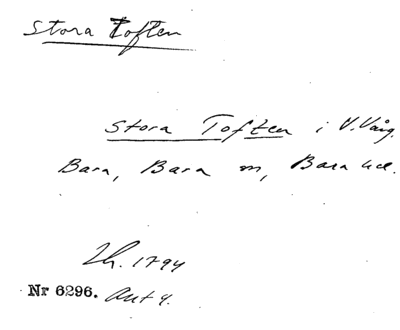 Stora Toften
Stora Toften i V. Vång.
Bara, Bara sn, Bara hd.
Lh. 1794
Nr 6296. Akt 4.